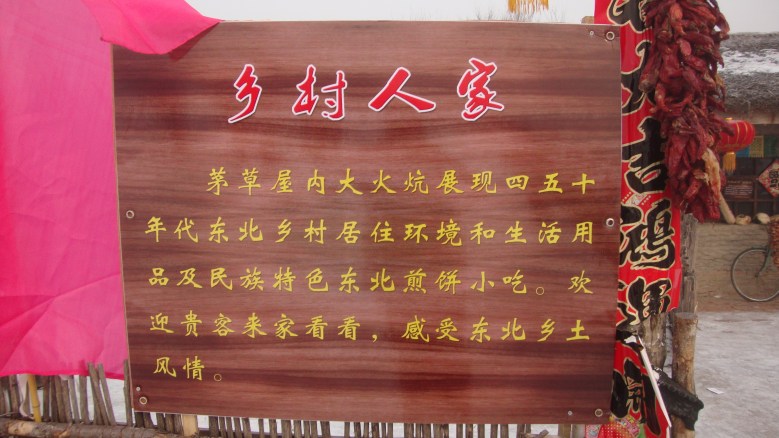 乡村人家
茅草屋内大火炕展现四五十
年代东北乡村居住环境和生活用
品及民族特色东北煎饼小吃。欢
迎贵客来家看看，感受东北乡土
风情。